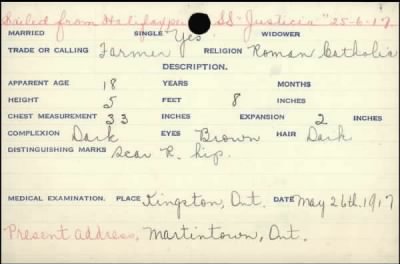 Sailed from Halifax per SS "Justicia" 25-6-17
MARRIED SINGLE Yes WIDOWER
TRADE OR CALLING Farmer RELIGION Roman Catholic
DESCRIPTION.
APPARENT AGE 18 YEARS MONTHS
HEIGHT 5 FEET 8 INCHES
CHEST MEASUREMENT 33 INCHES EXPANSION 2 INCHES
COMPLEXION Dark EYES Brown HAIR Dark
DISTINGUISHING MARKS Scar R. hip.
MEDICAL EXAMINATION. PLACE Kingston, Ont. DATE May 26th. 1917
Present address, Martintown, Ont.